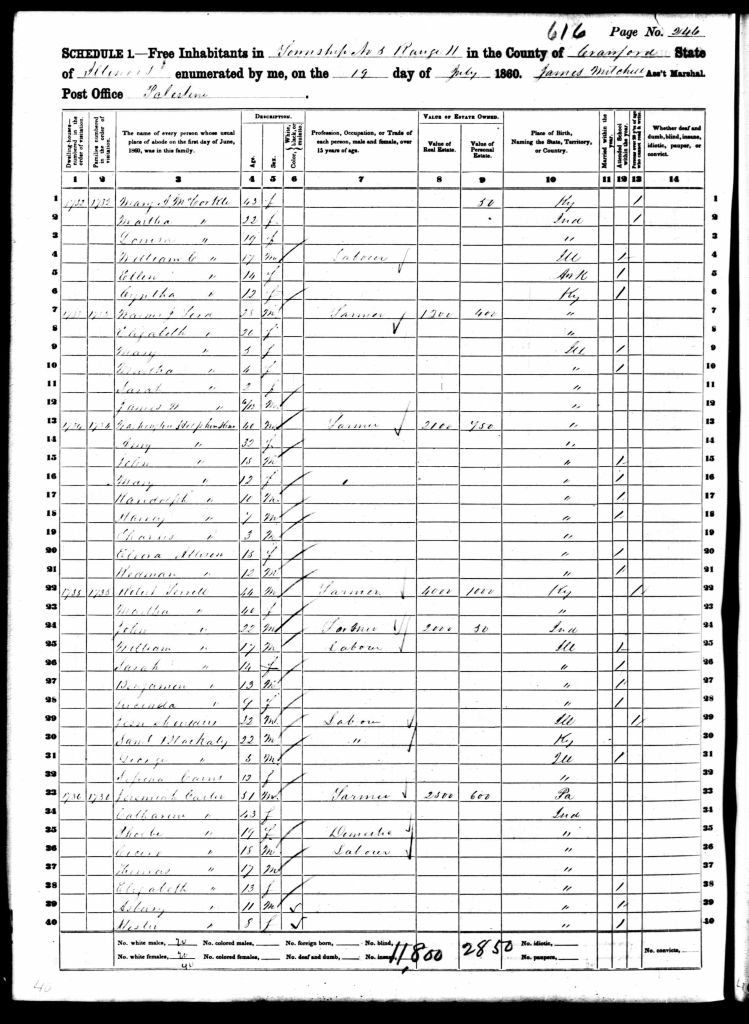 616 Page No. 246
SCHEDULE 1.—Free Inhabitants in Township No 5 Range 11 in the County of Crawford State
of Illinois enumerated by me, on the 19 day of July 1860. James Mitchell Ass't Marshal.
Post Office Palestine
Dwelling-houses—numbered in the order of visitation.
Families numbered in the order of visitation.
The name of every person whose usual place of abode on the first day of June, 1860, was in this family.
DESCRIPTION.
Age.
Sex.
Color, White, black, or mulatto.
Profession, Occupation, or Trade of each person, male and female, over 15 years of age.
VALUE OF ESTATE OWNED.
Value of Real Estate.
Value of Personal Estate.
Place of Birth, Naming the State, Territory, or Country.
Married within the year.
Attended School within the year.
Persons over 20 y'rs of age who cannot read & write.
Whether deaf and dumb, blind, insane, idiotic, pauper, or convict.
1 2 3 4 5 6 7 8 9 10 11 12 13 14
1 1732 1732 Mary McCorkle 43 f 50 Ky / 1
2 Martha " 22 f Ind / 2
3 Louisa " 19 f " 3
4 William C " 17 m Labour Ill / 4
5 Ellen " 14 f Ark / 5
6 Cyntha " 12 f Ky / 6
7 1733 1733 28 m Farmer 1200 400 " 7
8 Elizabeth " 26 f " 8
9 Mary " 5 f Ill / 9
10 Martha " 4 f " / 10
11 Sarah " 2 f " 11
12 James " /12 m " 12
13 1734 1734 Washington 40 m Farmer 2100 750 " 13
14 " 32 f " 14
15 John " 15 m " / 15
16 Mary " 12 f " / 16
17 Randolph " 10 m " / 17
18 Harvey " 7 m " / 18
19 Charles " 3 m " 19
20 Allison 15 f " / 20
21 " 12 m " / 21
22 1735 1735 44 m Farmer 4000 1000 Ky / 22
23 Martha " 40 f " 23
24 John " 22 m Farmer 2000 50 Ind 24
25 William " 17 m Labour Ill / 25
26 Sarah " 14 f " / 26
27 Benjamin " 13 m " / 27
28 Lucinda " 9 f " / 28
29 22 m Labour Ill / 29
30 Saml 22 m " Ky 30
31 George " 5 m Ill / 31
32 12 f " 32
33 1736 1736 Jeremiah Carter 51 m Farmer 2500 600 Pa 33
34 Catharine " 43 f Ind 34
35 Phoebe " 19 f Domestic " 35
36 Cicero " 18 m Labour " 36
37 Thomas " 17 m " 37
38 Elizabeth " 13 f " / 38
39 Asbury " 11 m " / 39
40 Hester " 8 f " / 40
No. white males, 20 No. colored males, No. foreign born, No. blind, No. idiotic,
No. white females, 20 No. colored females, No. deaf and dumb, No. insane, 11,800 2850 No. paupers, No. convicts,
40